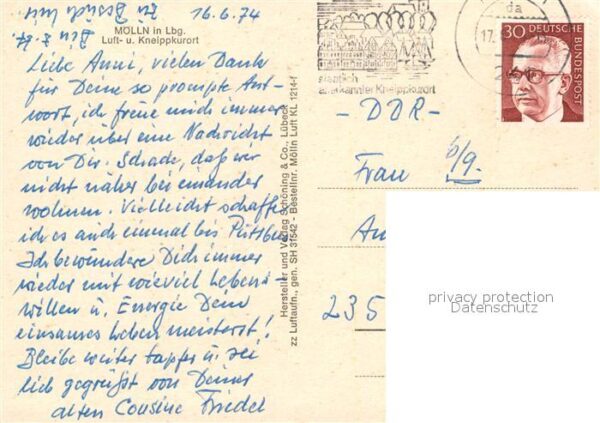 16.6.74
MÖLLN in Lbg.
Luft- u. Kneippkurort
Liebe Anni, vielen Dank
für Deine so prompte Ant-
wort, ich freue mich immer
wieder über eine Nachricht
von Dir. Schade, daß wir
nicht näher bei einander
wohnen. Vielleicht schaffe
ich es auch einmal bis
Ich bewundere Dich immer
wieder mit wieviel Lebens-
willen u. Energie Dein
einsames Leben meisterst!
Bleibe weiter tapfer u. sei
lieb gegrüßt von Deiner
alten Cousine Friedel
Hersteller und Verlag Schöning & Co., Lübeck
zz Luftaufn., gen. SH 31542 - Bestellnr. Mölln Luft KL 1214-f
staatlich
anerkannter Kneippkurort
da
17.
30 DEUTSCHE
BUNDESPOST
- DDR -
Frau
An
235
privacy protection
Datenschutz